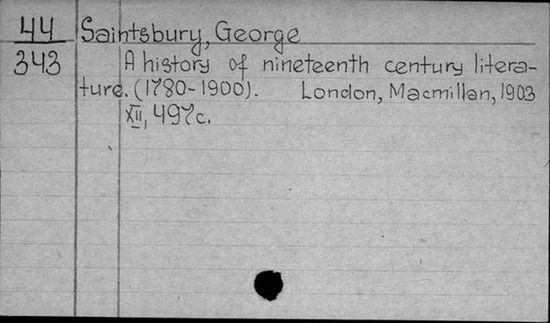 44 Saintsbury, George
343 A history of nineteenth century litera-
ture. (1780-1900). London, Macmillan, 1903
XII, 497c.